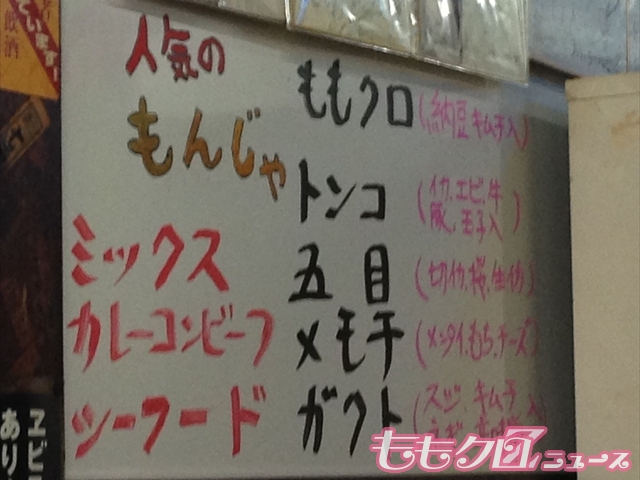 人気の
もんじゃ
ミックス
カレーコンビーフ
シーフード
ももクロ(納豆キムチ入)
トンコ(イカ、エビ、牛
豚、玉子入)
五目(切イカ、桜、生イカ)
メモ干(メンタイ、もち、チーズ)
ガクト(スジ、キムチ
ています!
飲酒
ヱビ
あり
ももクロニュース